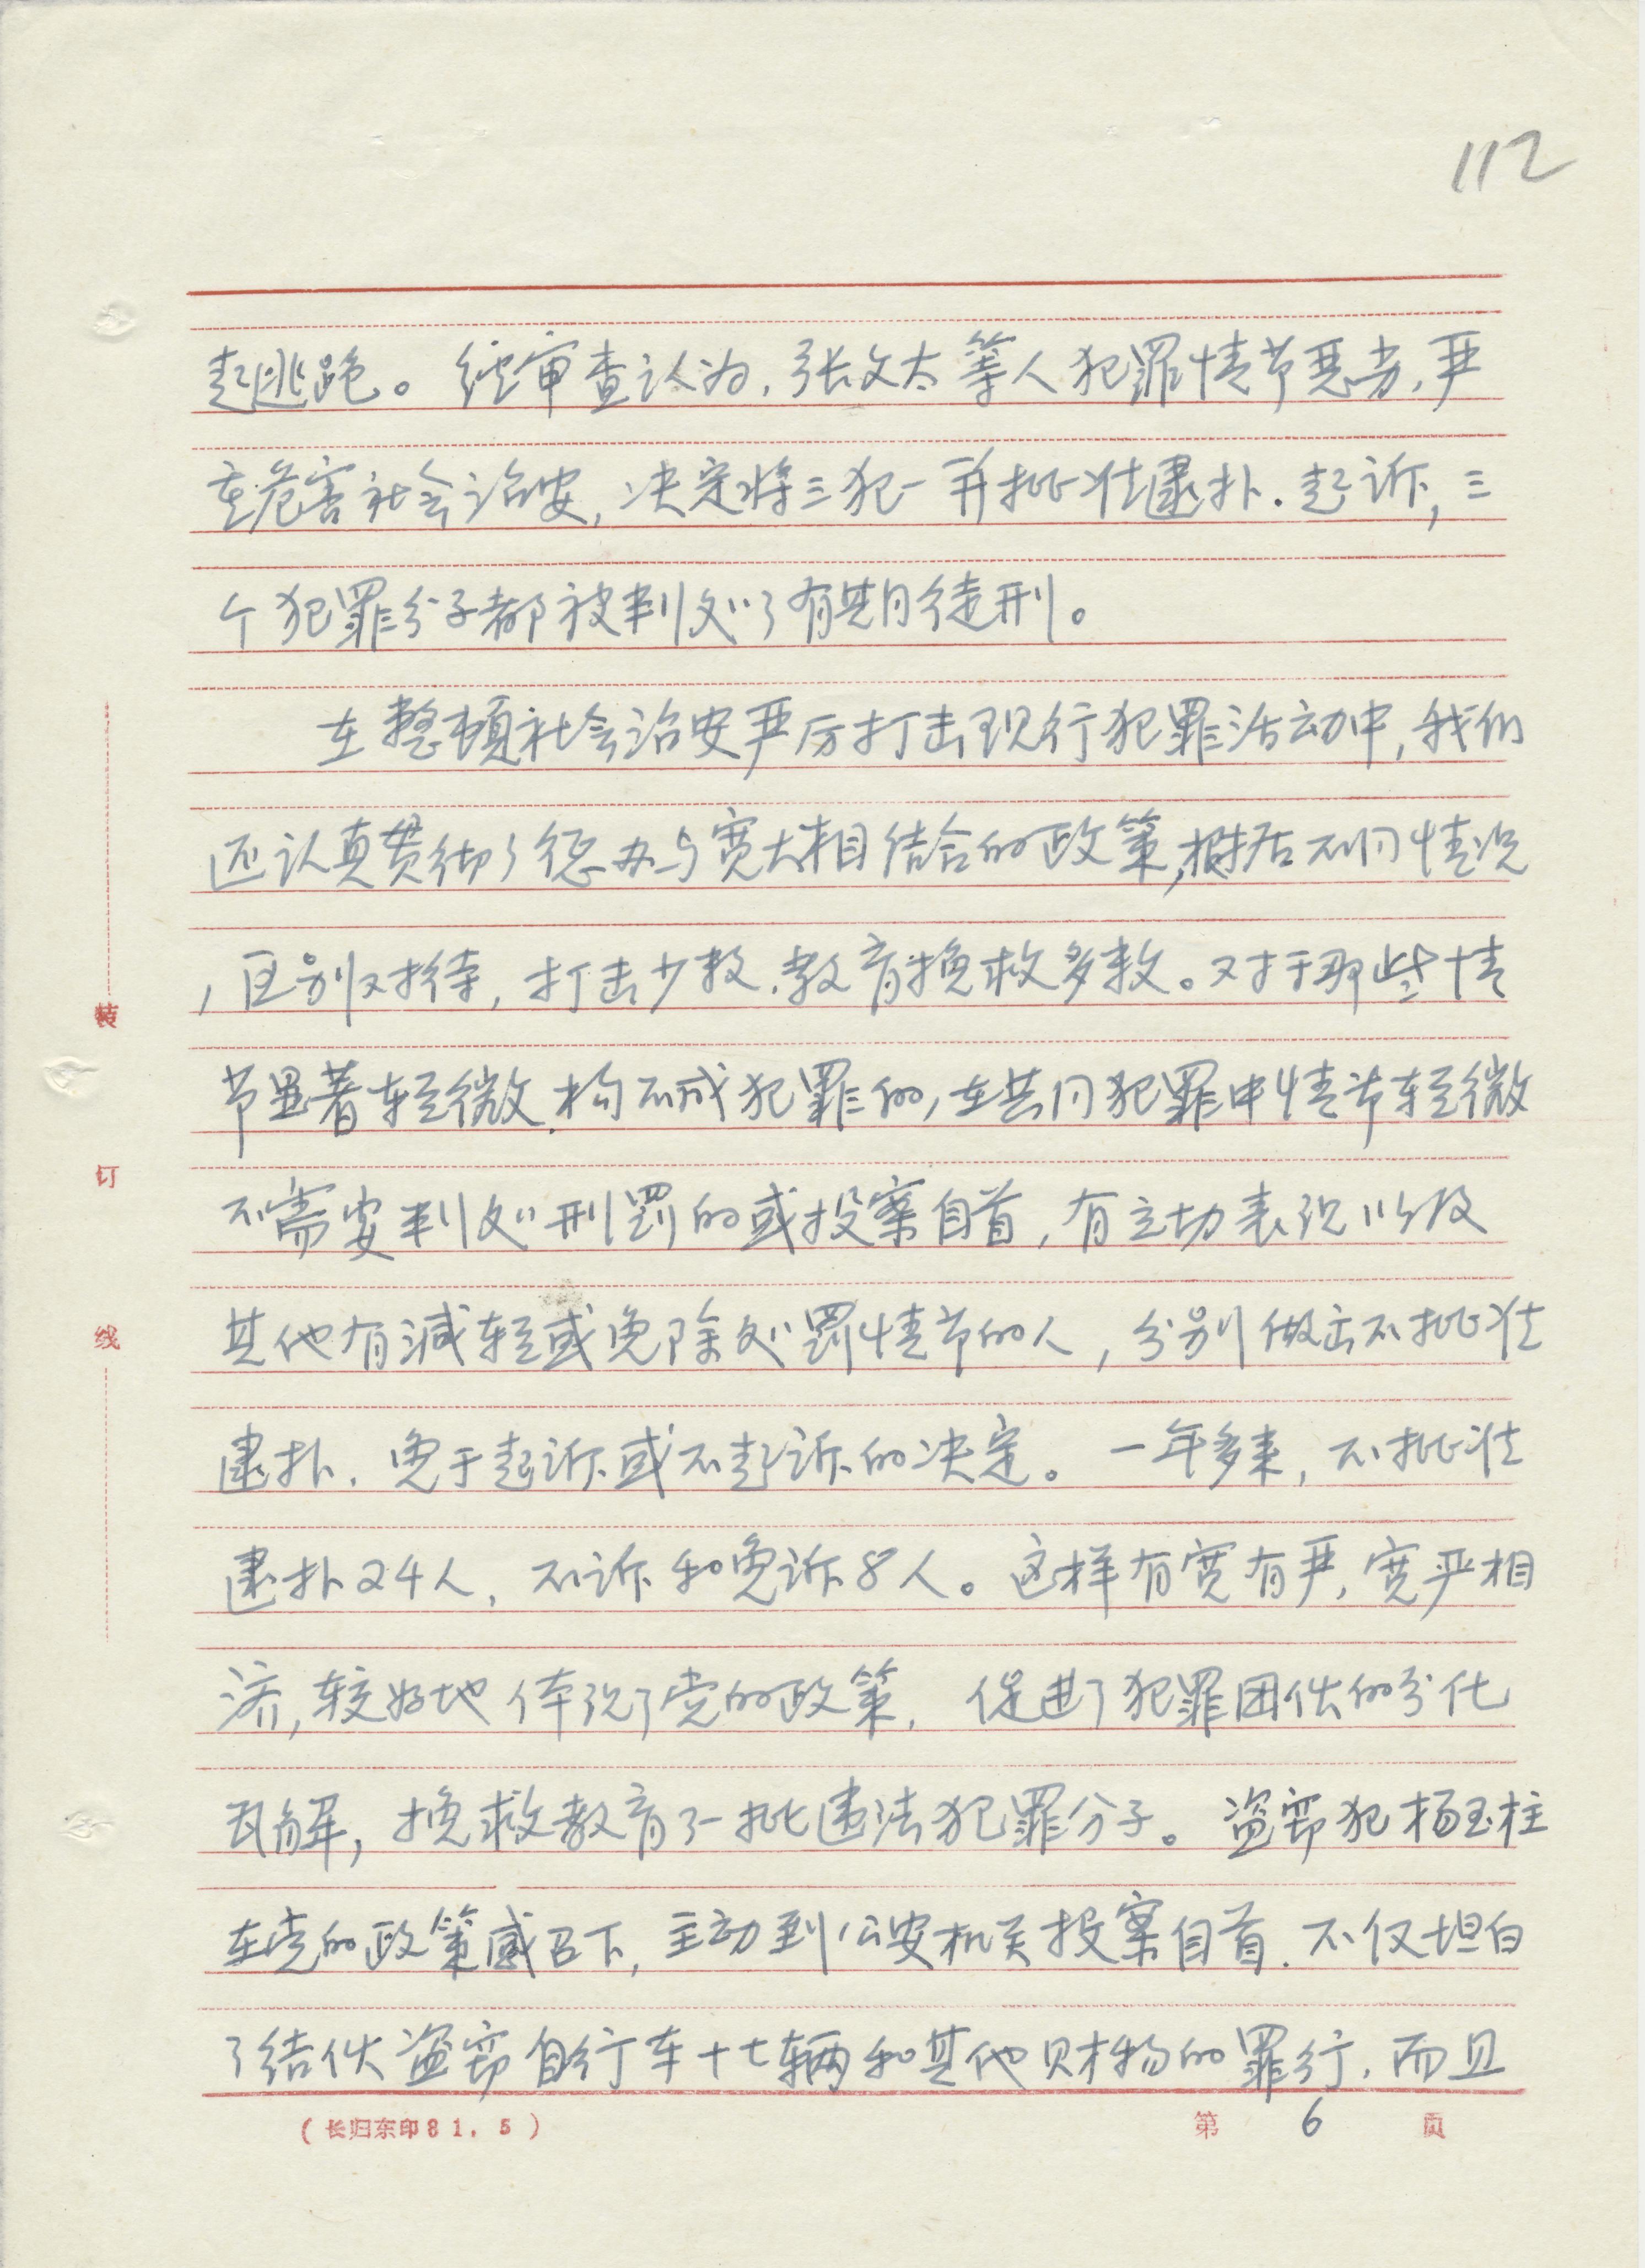 112
起逃跑。经审查认为，张文太等人犯罪情节恶劣，严
重危害社会治安，决定将三犯一并批准逮捕、起诉，三
个犯罪分子都被判处了有期徒刑。
在整顿社会治安严厉打击现行犯罪活动中，我们
还认真贯彻了惩办与宽大相结合的政策，根据不同情况
，区别对待，打击少数、教育挽救多数。对于那些情
节显著轻微、构不成犯罪的，在共同犯罪中情节轻微
不需要判处刑罚的或投案自首，有立功表现以及
其他有减轻或免除处罚情节的人，分别做出不批准
逮扑、免于起诉或不起诉的决定。一年多来，不批准
逮扑24人，不诉和免诉8人。这样有宽有严，宽严相
济，较好地体现了党的政策，促进了犯罪团伙的分化
瓦解，挽救教育了一批违法犯罪分子。盗窃犯杨玉柱
在党的政策感召下，主动到公安机关投案自首、不仅坦白
了结伙盗窃自行车十七辆和其他财物的罪行，而且
装
订
线
（长归东印81.5）
第 6 页